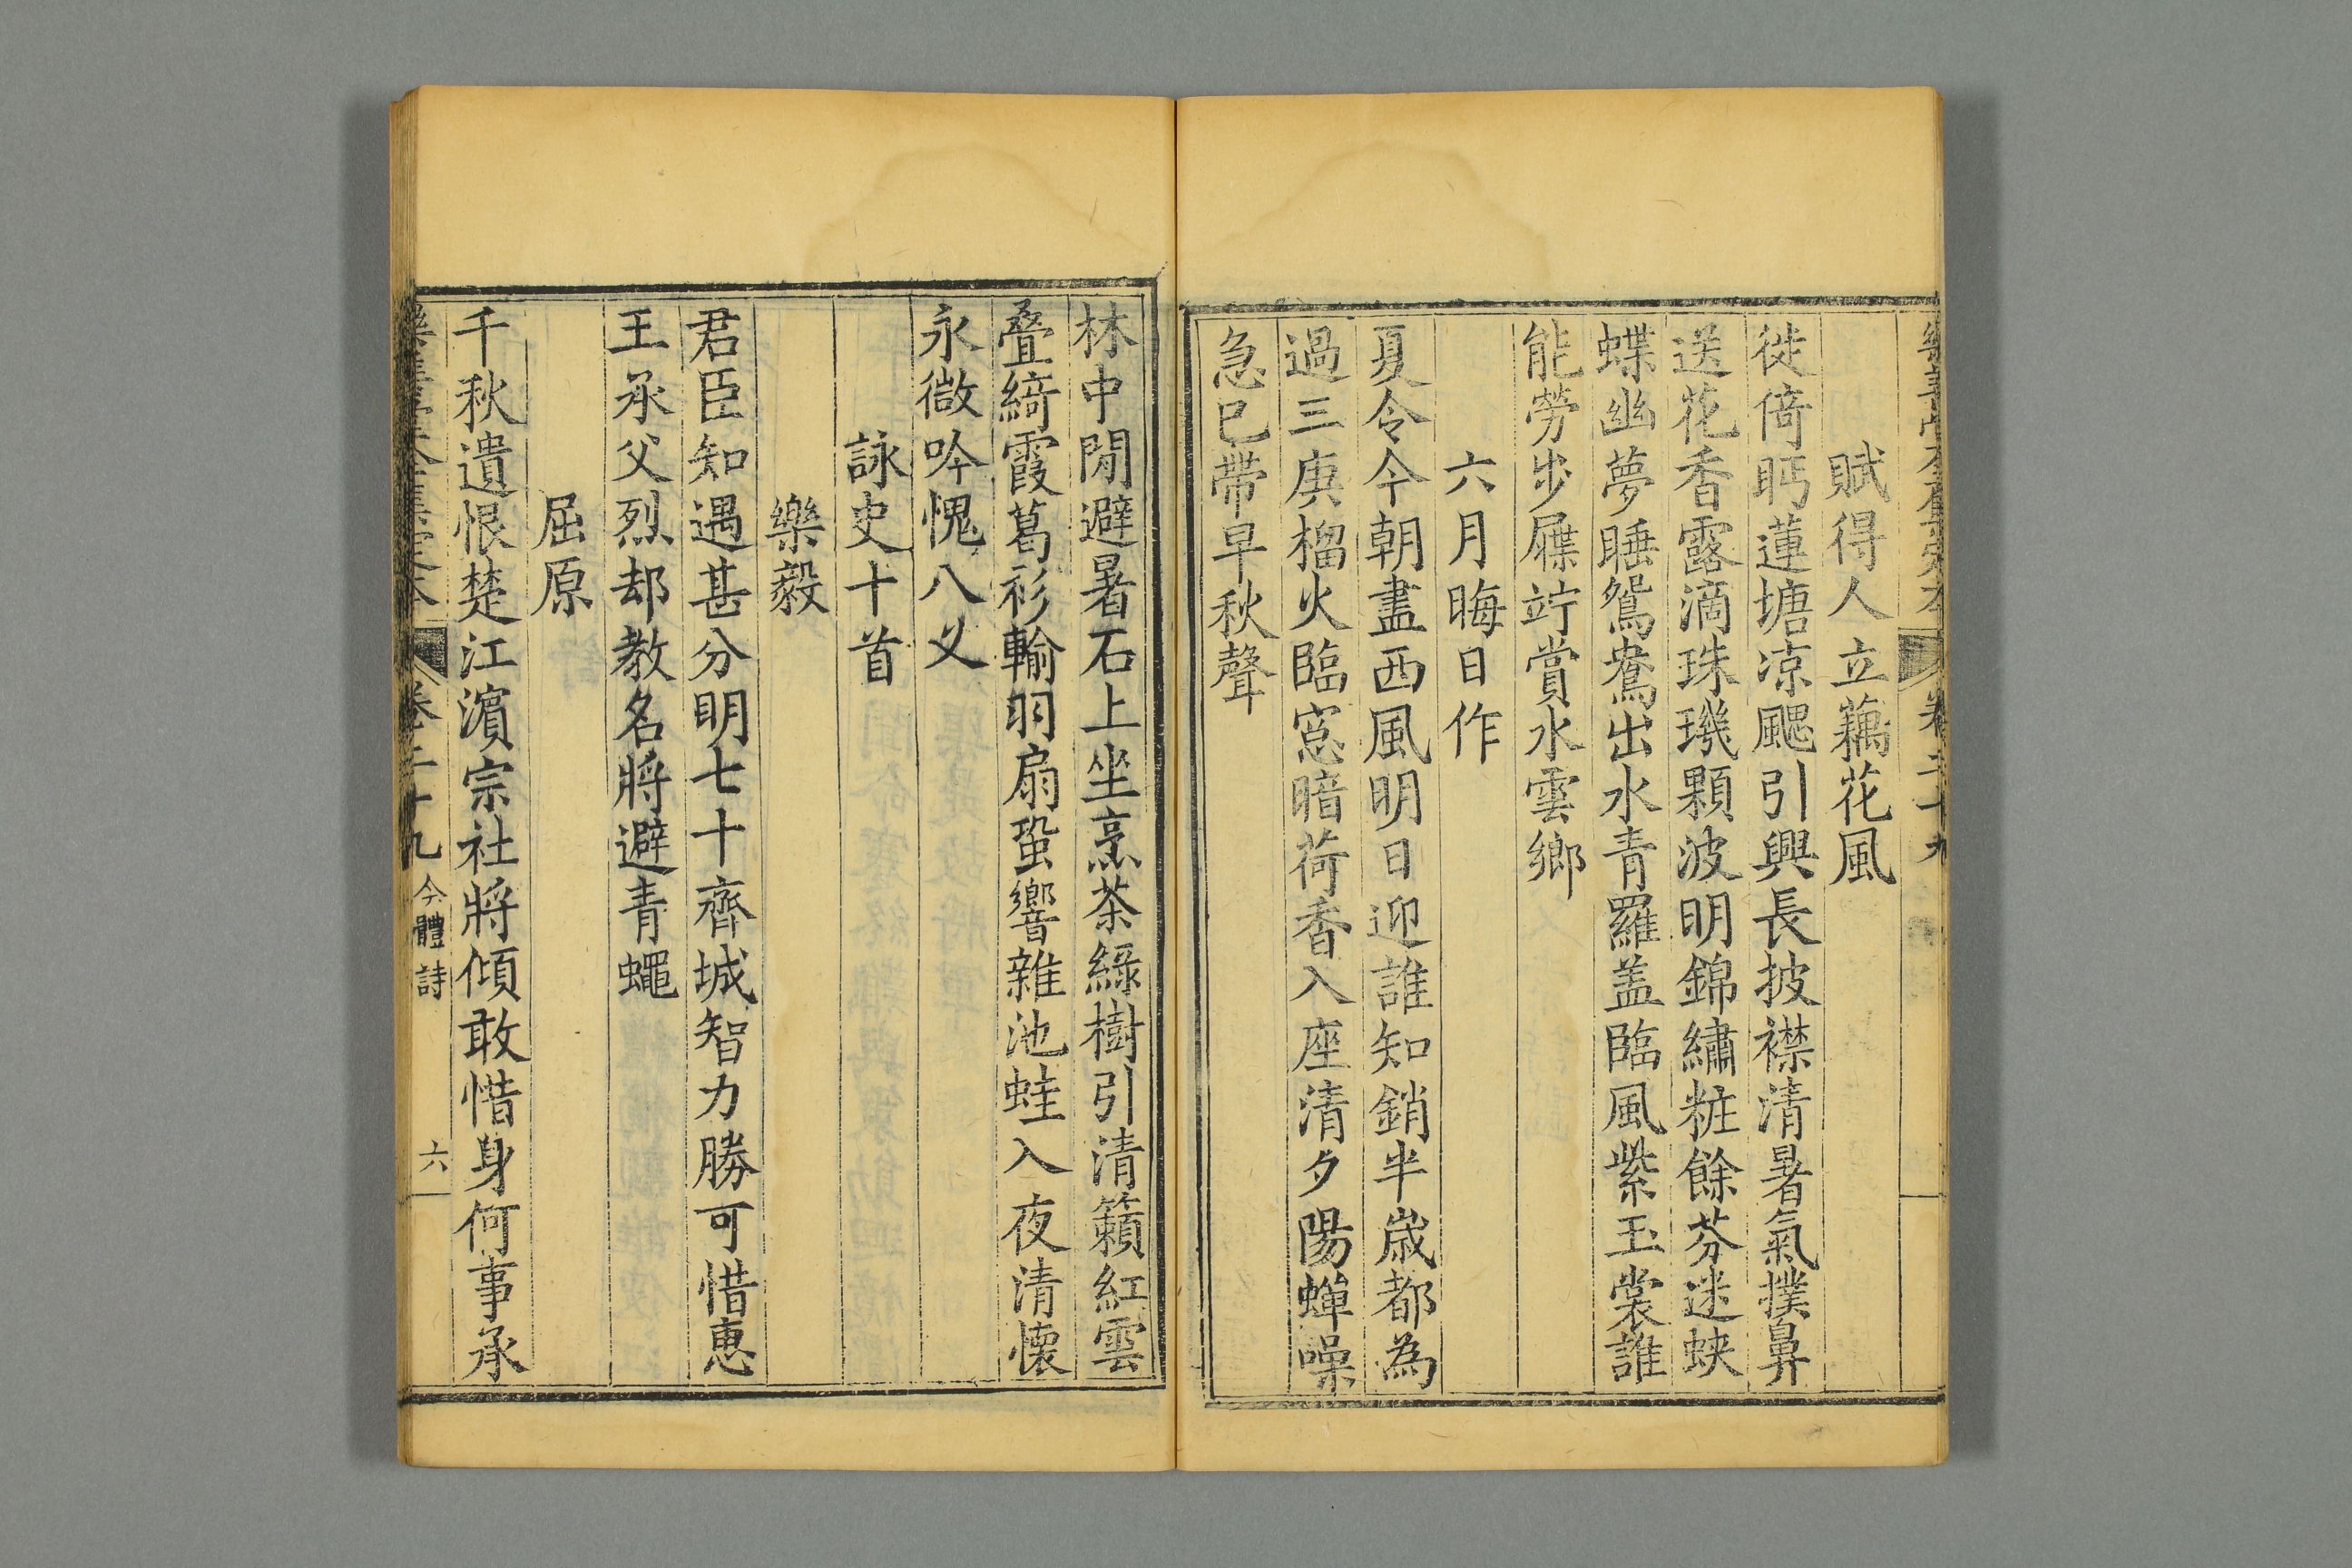 樂善堂全集定本 卷二十九
賦得人立藕花風
徙倚眄蓮塘凉颸引興長披襟清暑氣撲鼻
送花香露滴珠璣顆波明錦繡粧餘芬迷蛺
蝶幽夢睡鴛鴦出水青羅盖臨風紫玉裳誰
能勞步屧竚賞水雲鄉
六月晦日作
夏令今朝盡西風明日迎誰知銷半歲都為
過三庚榴火臨窓暗荷香入座清夕陽蟬噪
急已帶早秋聲
林中閒避暑石上坐烹茶綠樹引清籟紅雲
叠綺霞葛衫輸羽扇蛩響雜池蛙入夜清懷
永微吟愧八义
詠史十首
樂毅
君臣知遇甚分明七十齊城智力勝可惜惠
王承父烈却教名將避青蠅
屈原
千秋遺恨楚江濱宗社將傾敢惜身何事承
樂善堂全集定本 卷二十九 今體詩 六